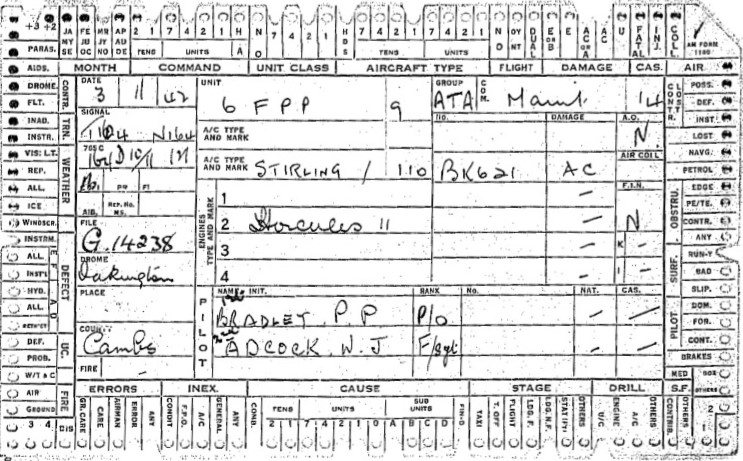 +3 +2 JA MY SE FE JU OC MR JY NO AP AU DE 2 1 7 4 2 1 H A N O 7 4 2 1 H D S 7 4 2 1 7 4 2 1 N O OY NT DUAL E OR B E AC OR A AC U FATAL INJ. COLL. AM FORM 1180
PARAS. TENS UNITS TENS UNITS
AIDS. MONTH COMMAND UNIT CLASS AIRCRAFT TYPE FLIGHT DAMAGE CAS. AIR
DROME. CONTR. DATE UNIT GROUP COM. CONTR. LOST POSS.
FLT. 3 11 42 6 FPP 9 ATA Maint. 14 DEF.
INAD. TRN. SIGNAL A/C TYPE AND MARK NO. DAMAGE A.O. INST
INSTR. N164 N. LOST
VIS: LT. WEATHER 765C A/C TYPE AND MARK AIR COLL NAVG.
REP. STIRLING / 110 BK621 AC PETROL
ALL. F.I.N. OBSTRU. EDGE
ICE AIB. REP. No. MS. ENGINES TYPE AND MARK 1 – PE/TE.
WINDSCR. FILE 2 Hercules 11 – N CONTR.
INSTRM. G.14238 3 – K ANY
ALL DEFECT DROME 4 – I SURF. RUN-Y
INST'L Oakington BAD
HYD. PLACE PILOT NAME. INIT. RANK No. NAT. CAS. SLIP.
ALL. BRADLEY. P. P P/O – – PILOT DOM.
FOR.
DEF. UC. COUNTY ADCOCK. W. J F/Sgt – – CONT.
PROB. Cambs BRAKES
W/T & C FIRE – MED BOX
AIR FIRE ERRORS INEX. CAUSE STAGE DRILL S.F. OTHERS
GROUND GR. CARE CARE AIRMAN ERROR ANY CONDIT F.P.O. A/C GENERAL ANY COND. TENS UNITS SUB UNITS FIN-D TAXI T. OFF FLIGHT LDG. F. LDG. N.F. STATIFY: OTHERS U/C ENGINE A/C OTHERS CONTRIB. OTHERS 2
3 4 DIS 2 1 7 4 2 1 0 A B C D 1